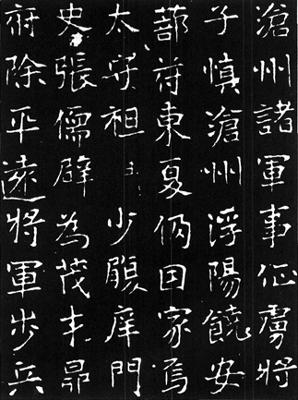 滄州諸軍事征虜將
子慎滄州浮陽饒安
莭苻東夏因家焉
太守祖少履庠門
史張儒辟為茂才
府除平遠將軍步兵